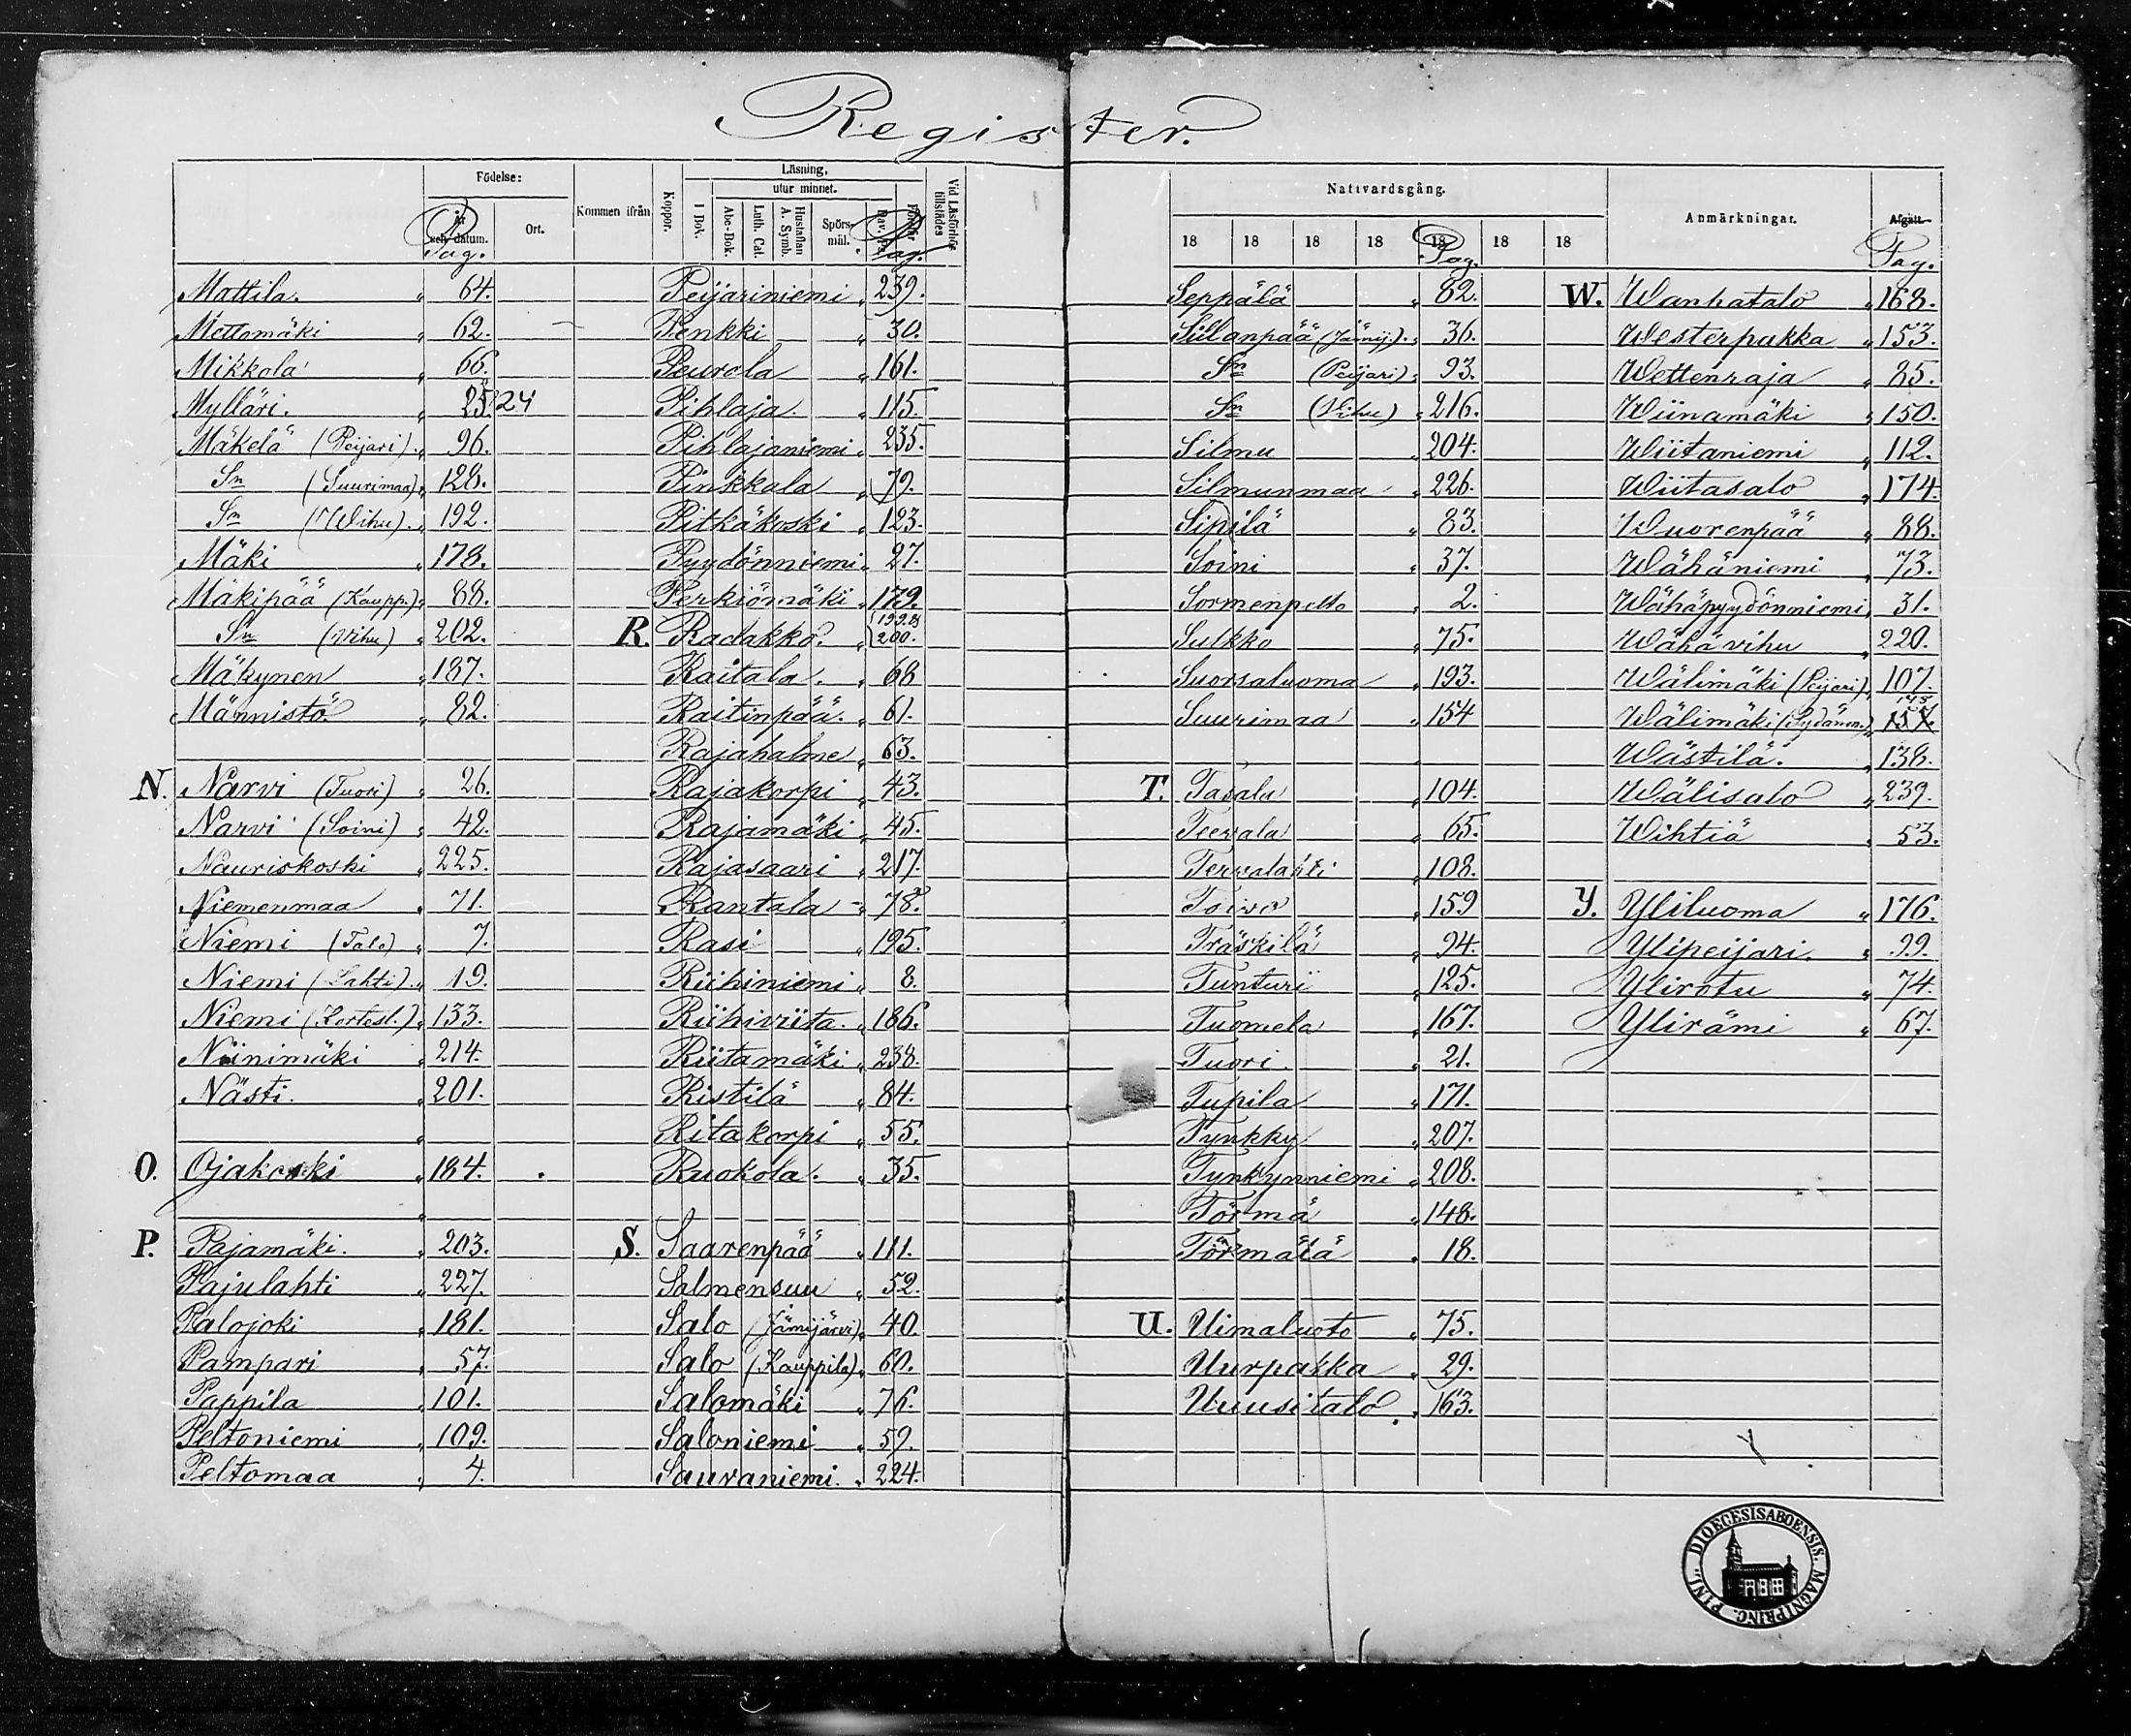 Register.
Födelse:
år och datum.
Pag.
Ort.
Kommen ifrån
Koppor.
Läsning,
utur minnet.
I Bok.
Abc-Bok.
Luth. Cat.
Hustaflan A. Symb.
Spörs-mål.
Dav. Ps.
Pag.
Vid Läsförhör tillstädes
Mattila. „ 64.
Mettomäki „ 62.
Mikkola „ 66.
Mylläri. „ 25. 24
Mäkelä (Peijari). „ 96.
Sn (Suurimaa) „ 128.
Sn (Wihu). „ 192.
Mäki „ 178.
Mäkipää (Kaupp.) „ 88.
Sn (Vihu) „ 202.
Mäkynen „ 187.
Männistö „ 82.
N. Narvi (Tuori) „ 26.
Narvi (Soini) „ 42.
Nauriskoski „ 225.
Niemenmaa „ 71.
Niemi (Talo) „ 7.
Niemi (Lahti). „ 19.
Niemi (Kortesl.) „ 133.
Niinimäki „ 214.
Nästi. „ 201.
O. Ojakoski „ 184.
P. Pajamäki. „ 203.
Pajulahti „ 227.
Palojoki „ 181.
Pampari „ 57.
Pappila „ 101.
Peltoniemi „ 109.
Peltomaa „ 4.
Peijariniemi „ 239.
Penkki „ 30.
Peurola „ 161.
Pihlaja. „ 115.
Pihlajaniemi „ 235.
Pinkkala „ 79.
Pitkäkoski „ 123.
Pyydönniemi „ 27.
Perkiömäki „ 179.
R. Radakko. „ 199 & 200.
Raitala. „ 68
Raitinpää. „ 61.
Rajahalme „ 63.
Rajakorpi „ 43.
Rajamäki „ 45.
Rajasaari „ 217.
Rantala „ 78.
Rasi „ 195.
Riihiniemi „ 8.
Riihiviita. „ 186.
Riitamäki. „ 238.
Ristilä „ 84.
Ritakorpi „ 55.
Ruokola. „ 35.
S. Saarenpää „ 111.
Salmensuu „ 52.
Salo (Jämijärvi) „ 40.
Salo (Kauppila) „ 60.
Salomäki „ 76.
Saloniemi „ 59.
Sauvaniemi. „ 224.
Nattvardsgång.
18 18 18 18 18 18 18
Pag.
Anmärkningar.
Afgått.
Pag.
Seppälä „ 82.
Sillanpää (Jämij.). „ 36.
Sn (Peijari) „ 93.
Sn (Vihu) „ 216.
Silmu „ 204.
Silmunmaa „ 226.
Sipilä „ 83.
Soini „ 37.
Sormenpelto „ 2.
Sulkko „ 75.
Suorsaluoma „ 193.
Suurimaa „ 154
T. Tasala „ 104.
Teerala „ 65.
Tervalahti „ 108.
Toivo „ 159
Träskilä „ 94.
Tunturi „ 125.
Tuomela „ 167.
Tuori. „ 21.
Tupila „ 171.
Tynkky „ 207.
Tynkynniemi „ 208.
Törmä „ 148.
Törmälä „ 18.
U. Uimaluoto „ 75.
Uurpakka „ 29.
Uuusitalo „ 163.
W. Wanhatalo „ 168.
Westerpakka „ 153.
Wettenraja „ 85.
Wiinamäki „ 150.
Wiitaniemi „ 112.
Wiitasalo „ 174.
Wuorenpää „ 88.
Wähäniemi „ 73.
Wähäpyydönniemi „ 31.
Wähävihu „ 220.
Wälimäki (Peijari) „ 107.
Wälimäki (Pydänn.) „ 157. 145
Wästilä. „ 138.
Wälisalo „ 239.
Wihtiä „ 53.
Y. Yliluoma „ 176.
Ylipeijari. „ 99.
Ylirotu „ 74.
Ylirämi „ 67.
DIOECESIS ABOENSIS. MAGNI PRINC. FINL.